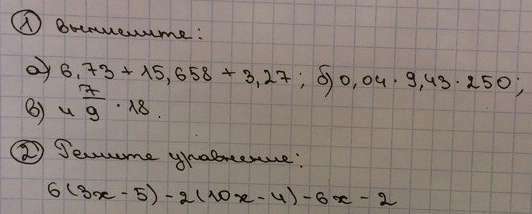 ① Вычислите:
а) 6,73 + 15,658 + 3,27; б) 0,04 · 9,43 · 250;
в) 4 7/9 · 18.
② Решите уравнение:
6(3x - 5) - 2(10x - 4) - 6x - 2